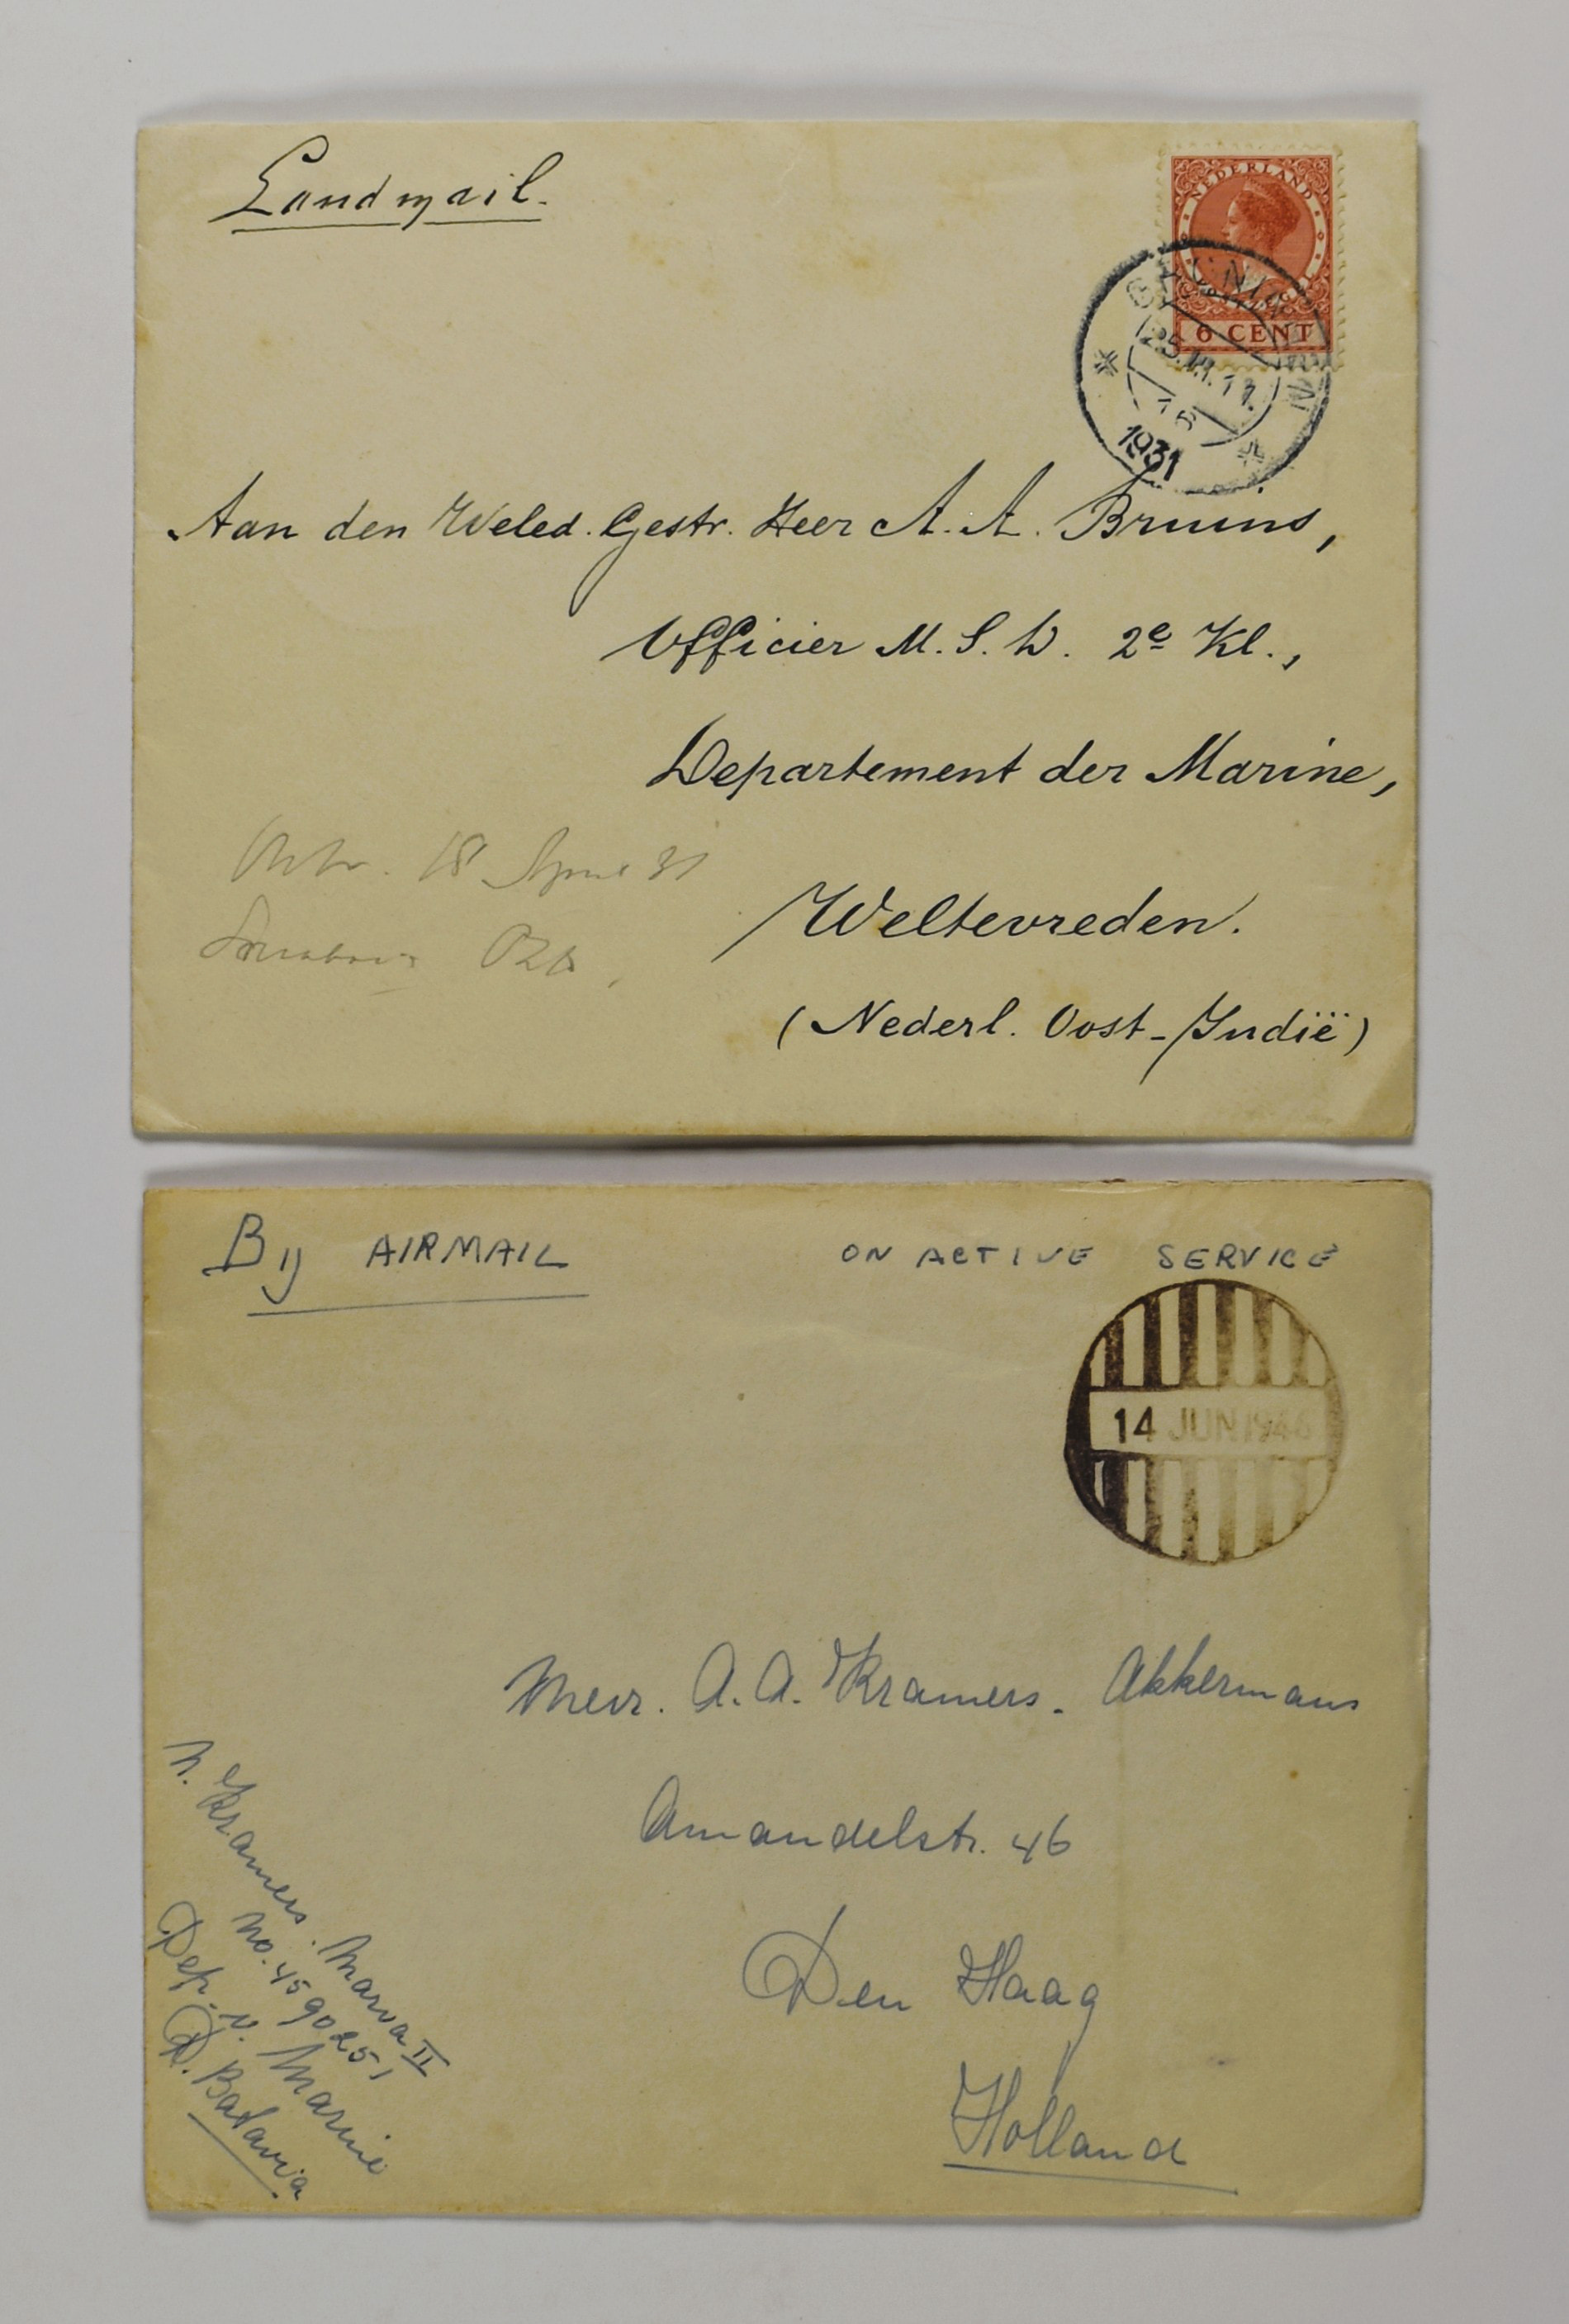 Landmail.
NEDERLAND
6 CENT
1931
Aan den Weled. Gestr. Heer A. A. Bruins,
Officier M. S. D. 2e Kl.,
Departement der Marine,
18 April 31
Weltevreden.
(Nederl. Oost-Indië)
By AIRMAIL
ON ACTIVE SERVICE
14 JUN 1946
Mevr. A. A. Kramers. Akkermans
Amandelstr. 46
Den Haag
Holland
N. Kramers. Marva II
No. 45 90251
Dep. v. Marine
Batavia